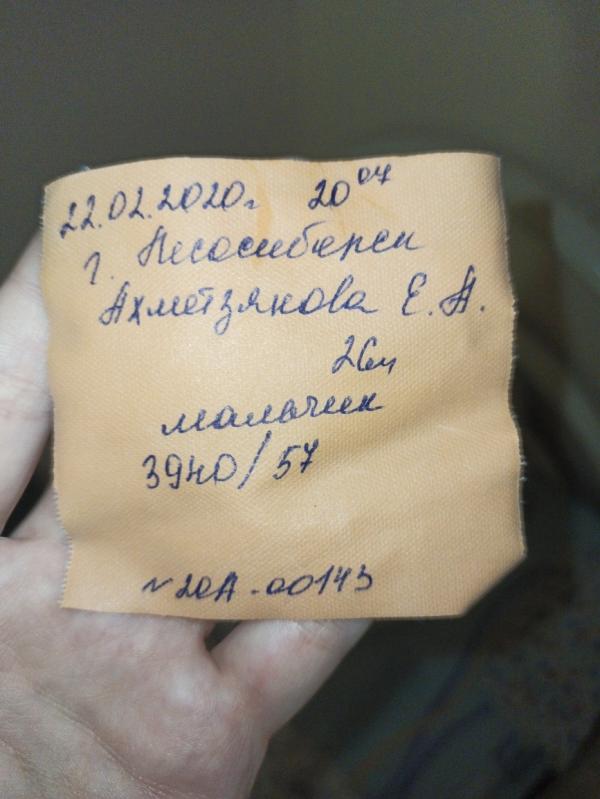 22.02.2020г 20 07
г. Лесосибирск
Ахметзянова Е. А.
мальчик
3940/57
№ 20А-00143